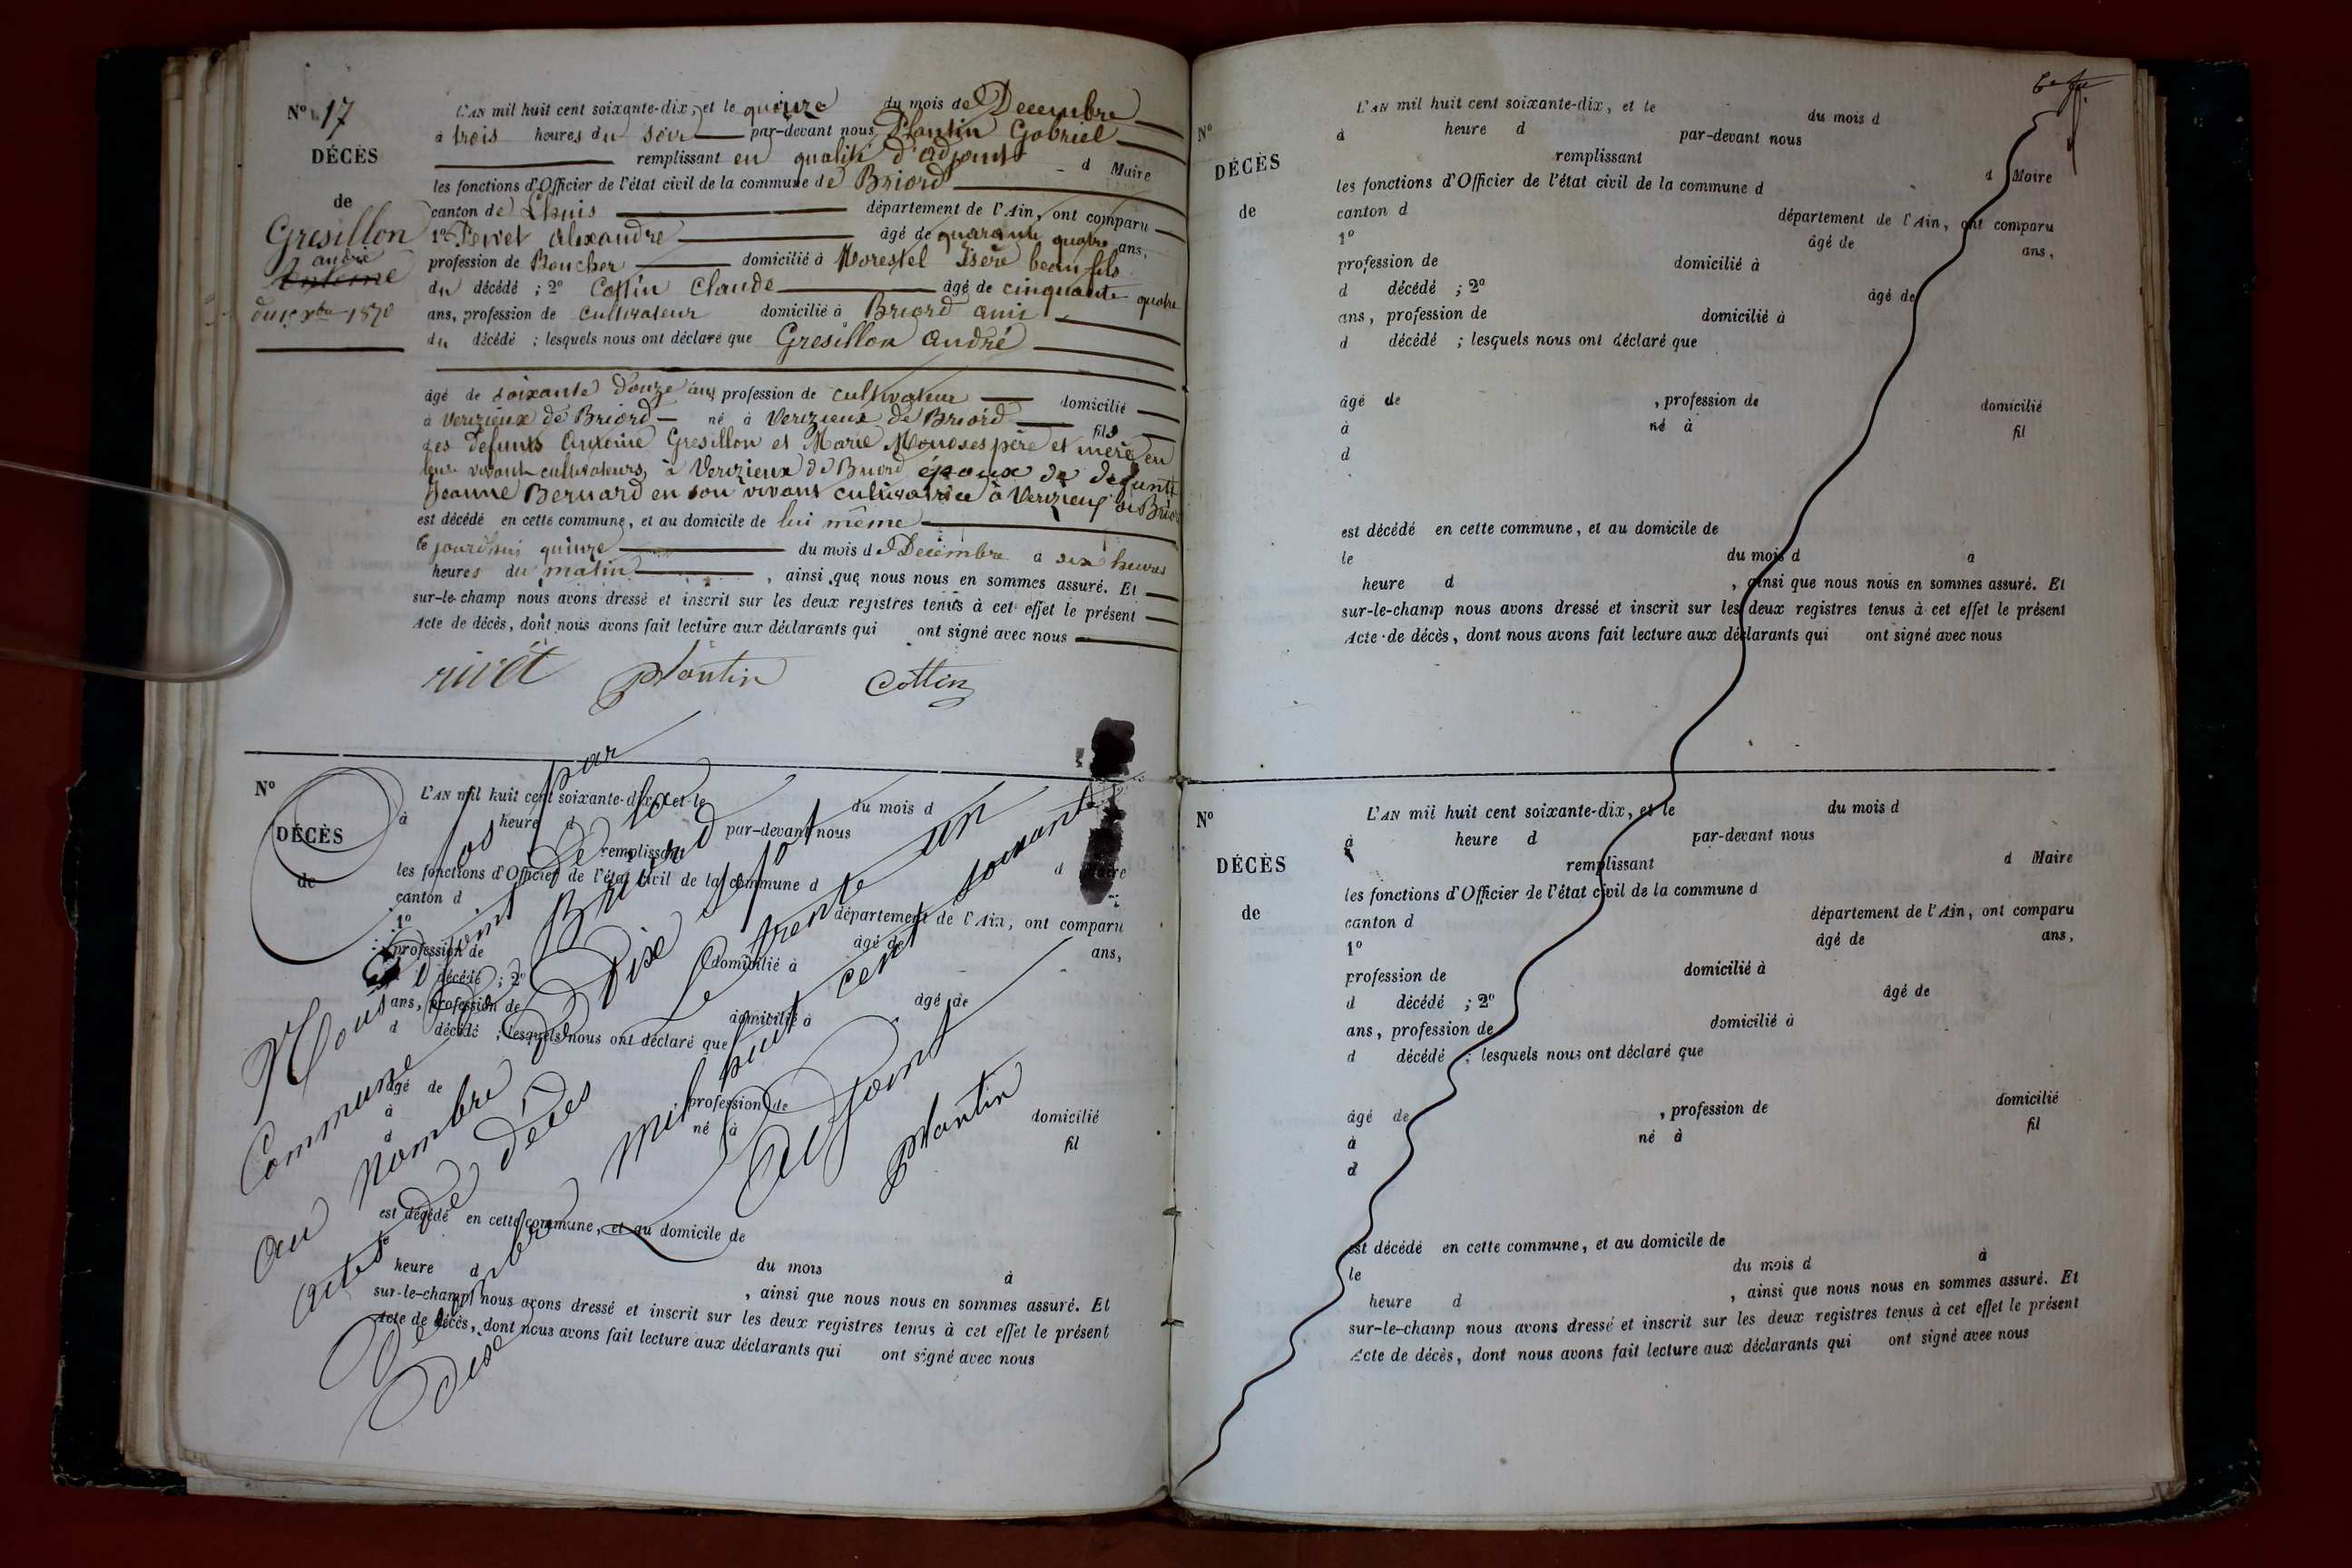 Nº 17
DÉCÈS
de
Gresillon
andré
Antoine
du 15 xbre 1870
L'AN mil huit cent soixante-dix, et le quinze du mois de Decembre
à trois heures du soir par-devant nous Plantin Gabriel
remplissant en qualité d'adjoint d Maire
les fonctions d'Officier de l'état civil de la commune de Briord
canton de Lhuis département de l'Ain, ont comparu
1º Rivet alexandre âgé de quarante quatre ans,
profession de Boucher domicilié à Morestel Isère beau fils
du décédé ; 2º Cottin Claude âgé de cinquante quatre
ans, profession de cultivateur domicilié à Briord ami
du décédé ; lesquels nous ont déclaré que Gresillon andré
âgé de soixante douze ans profession de cultivateur domicilié
à Verizieux de Briord né à Verizieux de Briord fils
des defunts Antoine Gresillon et Marie père et mère en
leur vivant cultivateurs à Verizieux de Briord époux de defunte
Jeanne Bernard en son vivant cultivatrice à Verizieux de Briord
est décédé en cette commune, et au domicile de lui même
le jourdhui quinze du mois de Decembre a six heures
heures du matin , ainsi que nous nous en sommes assuré. Et
sur-le-champ nous avons dressé et inscrit sur les deux registres tenus à cet effet le présent
Acte de décès, dont nous avons fait lecture aux déclarants qui ont signé avec nous
rivet Plantin Cottin
Nº
DÉCÈS
de
L'AN mil huit cent soixante-dix, et le du mois d
à heure d par-devant nous
remplissant d Maire
les fonctions d'Officier de l'état civil de la commune d
canton d département de l'Ain, ont comparu
1º âgé de ans,
profession de domicilié à
d décédé ; 2º âgé de
ans, profession de domicilié à
d décédé ; lesquels nous ont déclaré que
âgé de profession de domicilié
à né à fil
d
est décédé en cette commune, et au domicile de
du mois à
heure d , ainsi que nous nous en sommes assuré. Et
sur-le-champ nous avons dressé et inscrit sur les deux registres tenus à cet effet le présent
Acte de décès, dont nous avons fait lecture aux déclarants qui ont signé avec nous
Clos par
Nous adjoint de la
Commune de Briord
au nombre de Dix sept
actes de décès Le trente un
Decembre mil huit cent soixante
Dix
Adjoint
Plantin
Nº
DÉCÈS
de
L'AN mil huit cent soixante-dix, et le du mois d
à heure d par-devant nous
remplissant d Maire
les fonctions d'Officier de l'état civil de la commune d
canton d département de l'Ain, ont comparu
1º âgé de ans,
profession de domicilié à
d décédé ; 2º âgé de
ans, profession de domicilié à
d décédé ; lesquels nous ont déclaré que
âgé de , profession de domicilié
à né à fil
d
est décédé en cette commune, et au domicile de
le du mois d à
heure d , ainsi que nous nous en sommes assuré. Et
sur-le-champ nous avons dressé et inscrit sur les deux registres tenus à cet effet le présent
Acte de décès, dont nous avons fait lecture aux déclarants qui ont signé avec nous
Nº
DÉCÈS
de
L'AN mil huit cent soixante-dix, et le du mois d
à heure d par-devant nous
remplissant d Maire
les fonctions d'Officier de l'état civil de la commune d
canton d département de l'Ain, ont comparu
1º âgé de ans,
profession de domicilié à
d décédé ; 2º âgé de
ans, profession de domicilié à
d décédé ; lesquels nous ont déclaré que
âgé de , profession de domicilié
à né à fil
d
est décédé en cette commune, et au domicile de
le du mois d à
heure d , ainsi que nous nous en sommes assuré. Et
sur-le-champ nous avons dressé et inscrit sur les deux registres tenus à cet effet le présent
Acte de décès, dont nous avons fait lecture aux déclarants qui ont signé avec nous